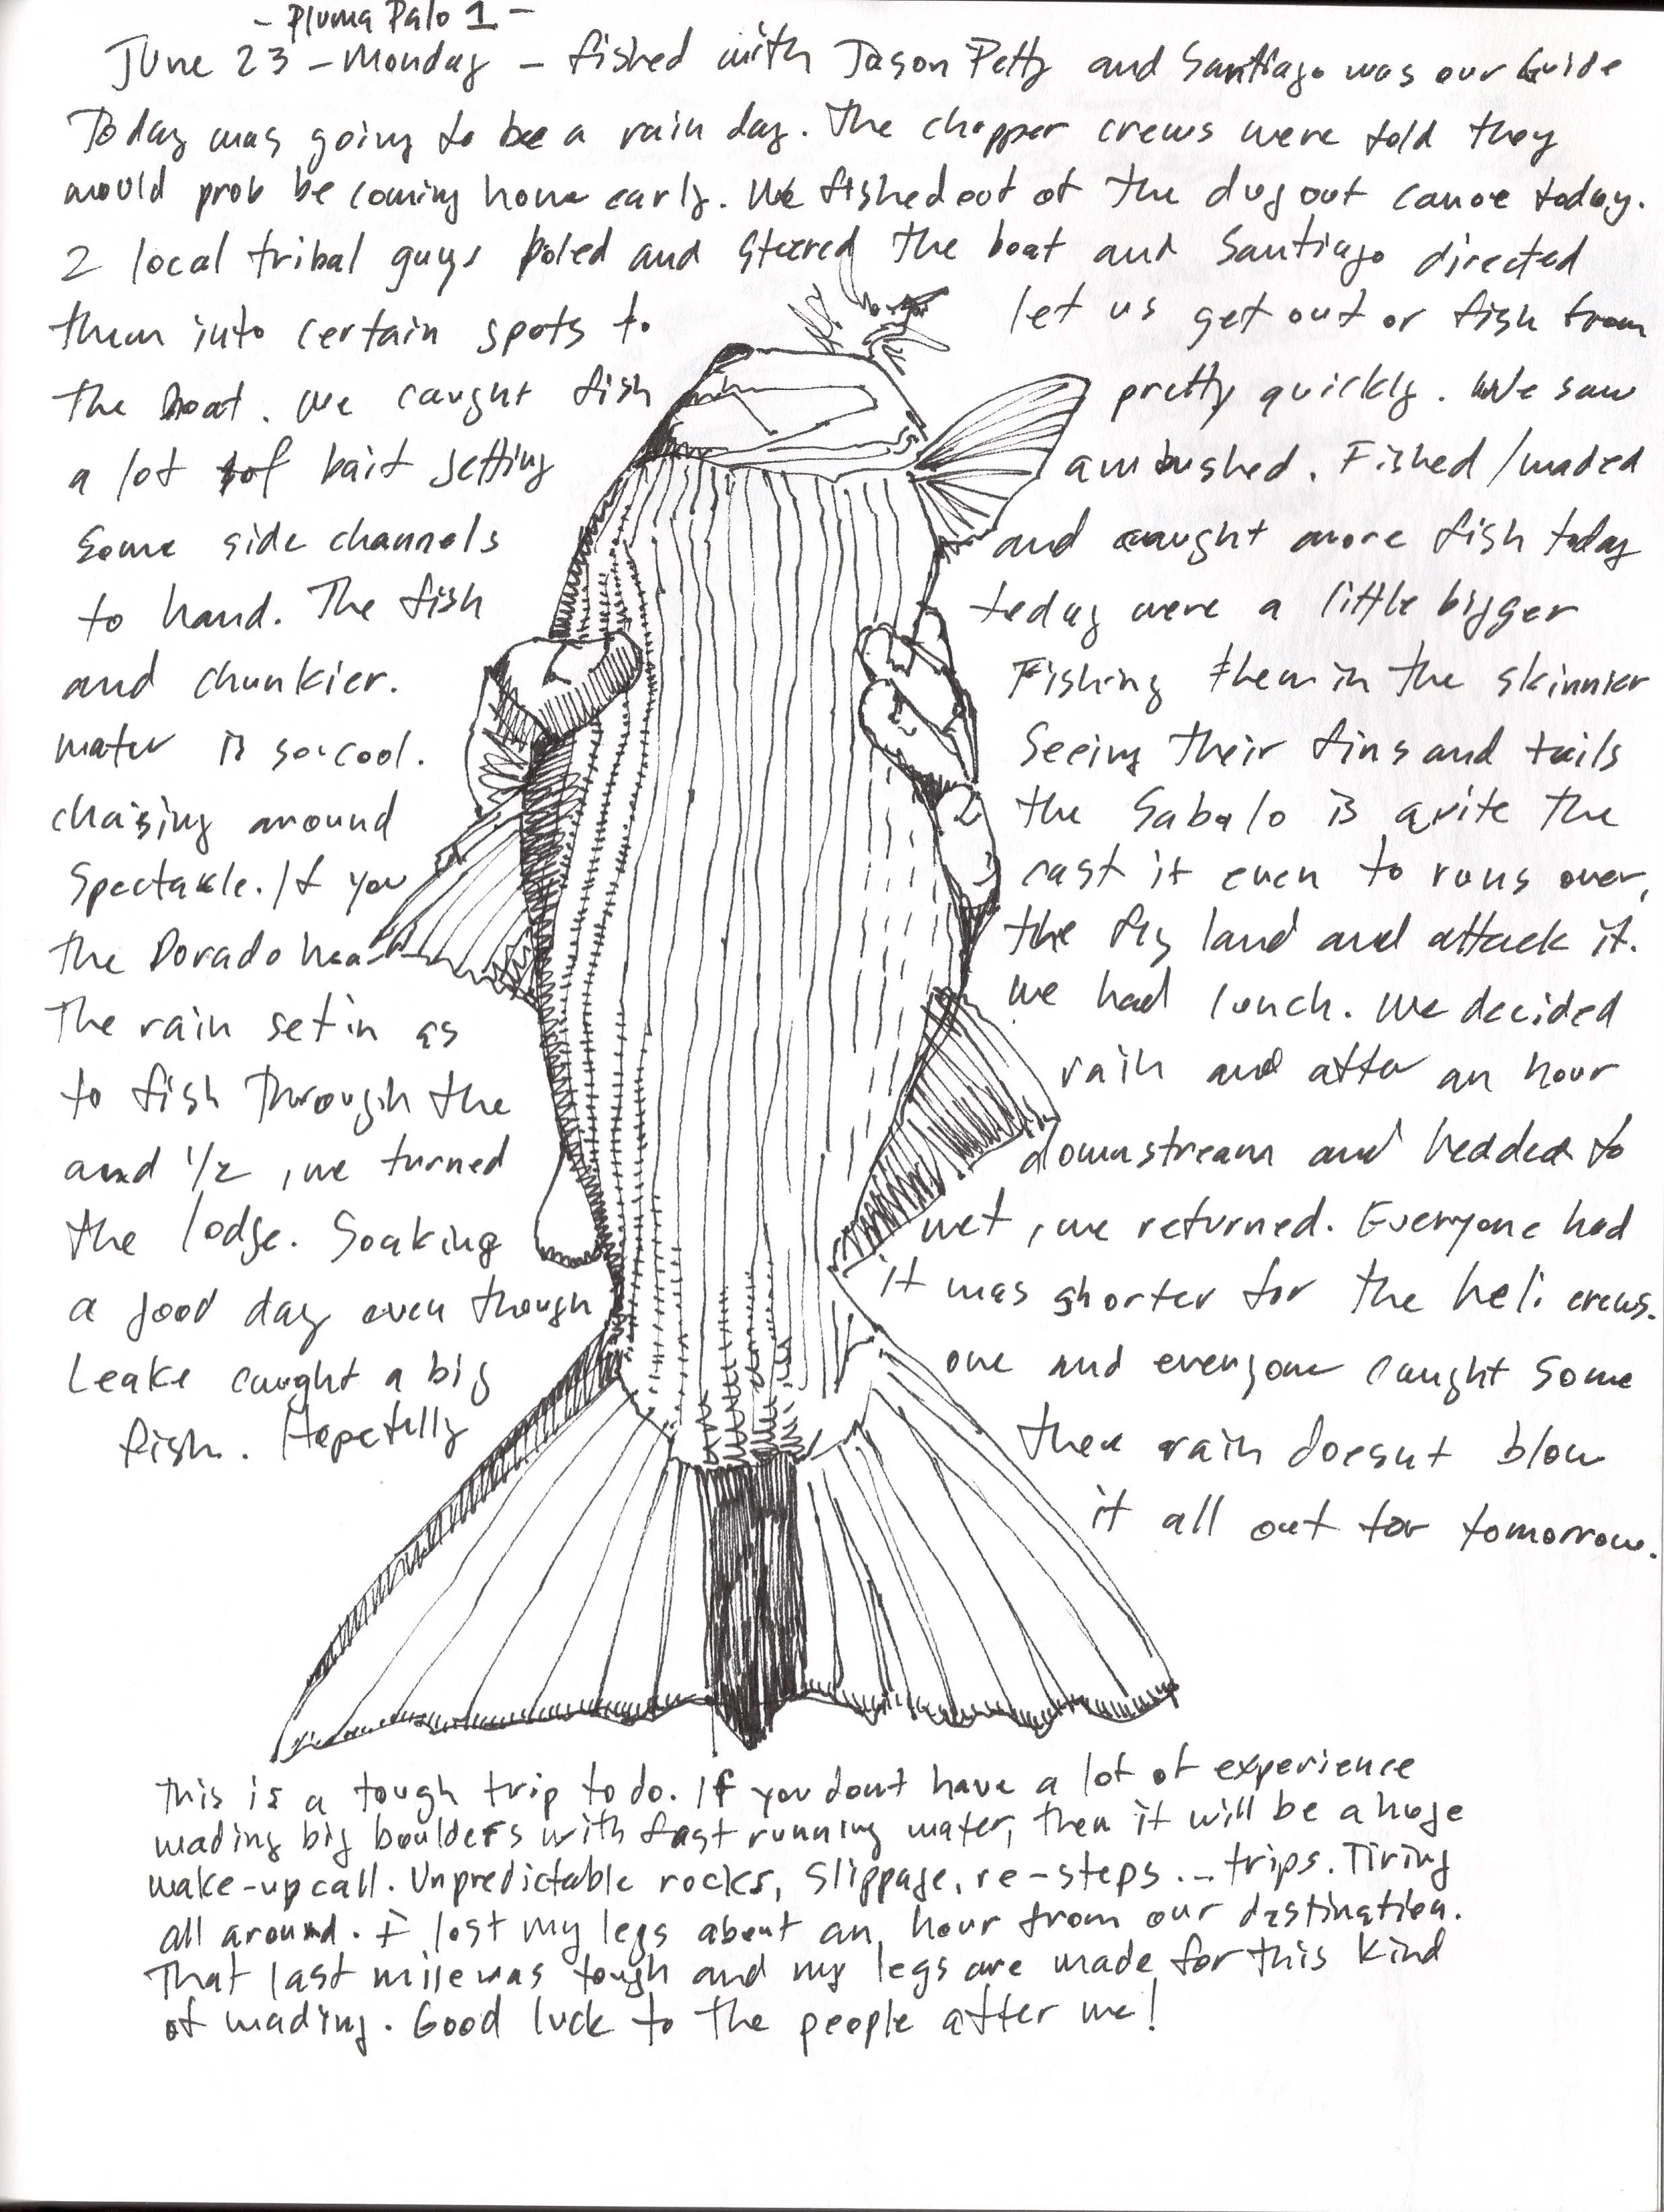 - Pluma Palo 1 -
June 23 - Monday - fished with Jason Petty and Santiago was our Guide
Today was going to be a rain day. The chopper crews were told they
would prob be coming home early. We fished out of the dug out canoe today.
2 local tribal guys poled and steered the boat and Santiago directed
them into certain spots to let us get out or fish from
the boat. We caught fish pretty quickly. We saw
a lot of bait getting ambushed. Fished/waded
some side channels and caught more fish today
to hand. The fish today were a little bigger
and chunkier. Fishing them in the skinnier
water is so cool. Seeing their fins and tails
chasing around the Sabalo is quite the
Spectakle. If you cast it even to runs over,
the Dorado hear the fly land and attack it.
The rain set in as we had lunch. We decided
to fish through the rain and after an hour
and 1/2, we turned downstream and hedded to
the lodge. Soaking wet, we returned. Everyone had
a good day even though it was shorter for the heli crews.
Leake caught a big one and everyone caught some
fish. Hopefully the rain doesnt blow
it all out for tomorrow.
This is a tough trip to do. If you dont have a lot of experience
wading big boulders with fast running water, then it will be a huge
wake-up call. Unpredictable rocks, slippage, re-steps... trips. Tiring
all around. I lost my legs about an hour from our destination.
That last mile was tough and my legs are made for this kind
of wading. Good luck to the people after me!